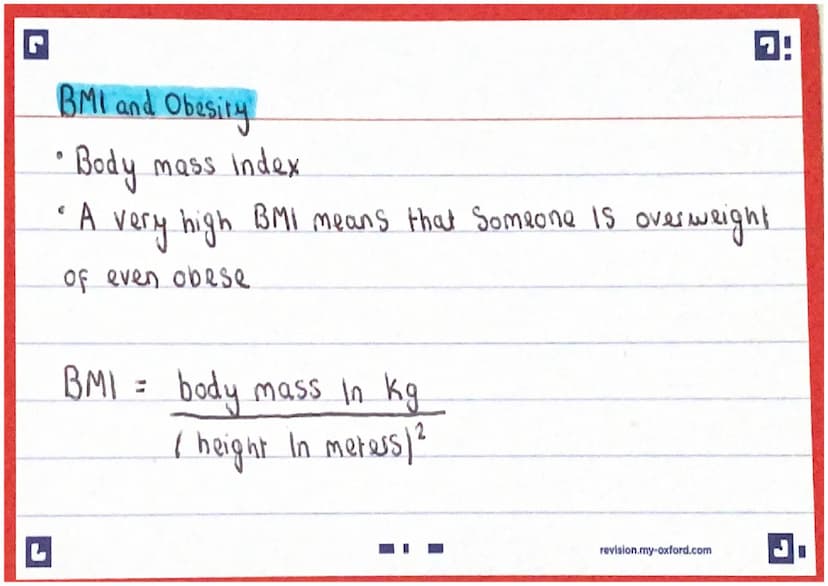 BMI and Obesity
• Body mass index
• A very high BMI means that someone is overweight
of even obese
BMI = body mass in kg
(height in meters)²
revision.my-oxford.com